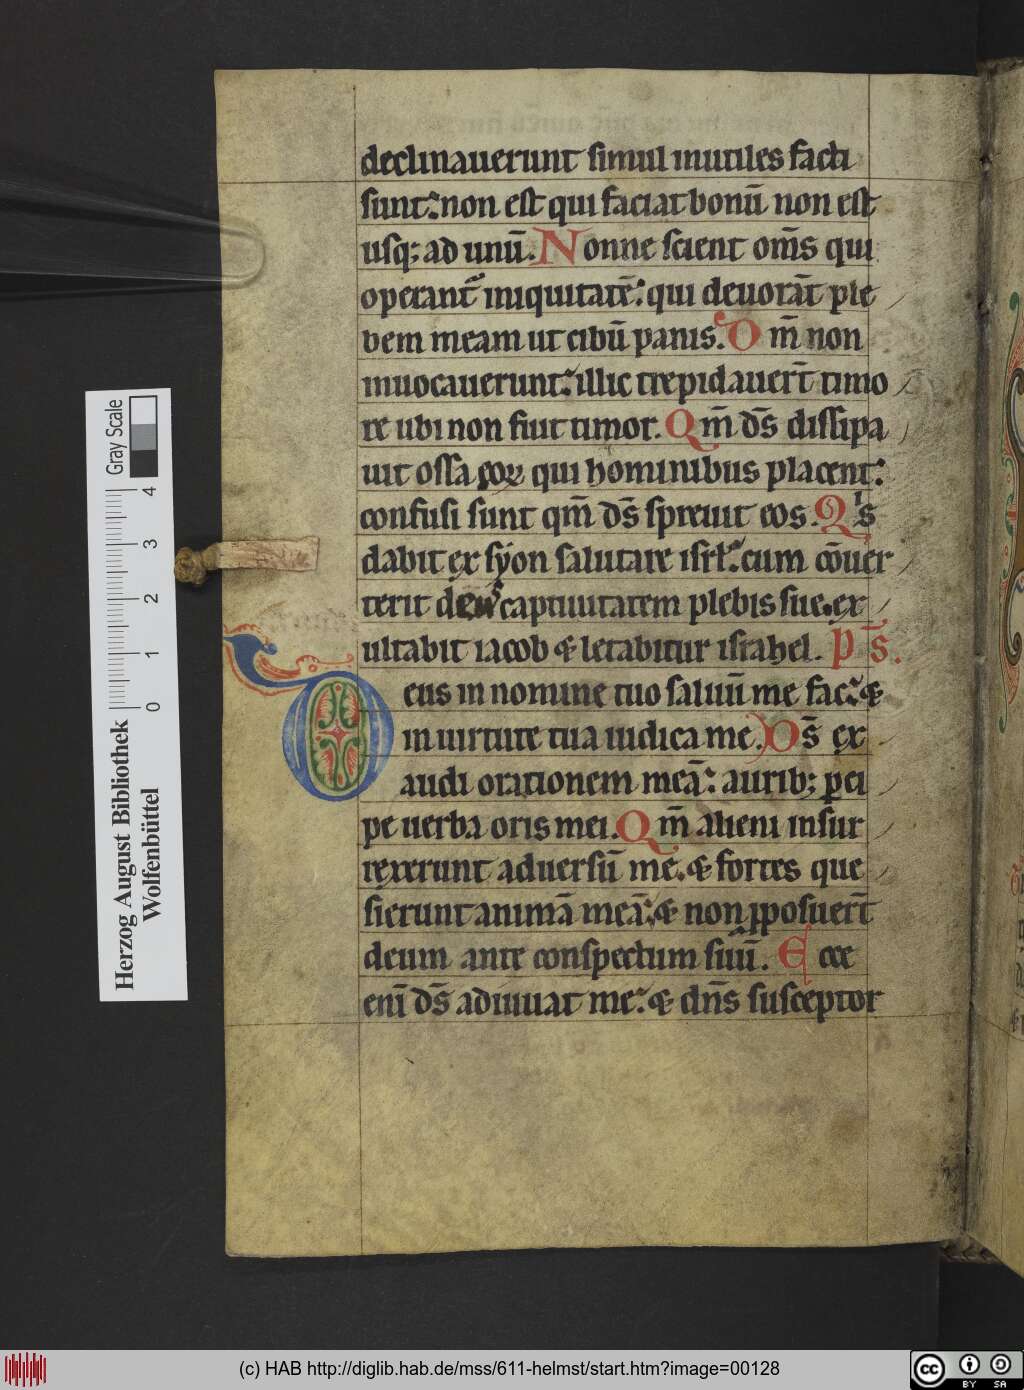 declinauerunt simul inutiles facti
sunt: non est qui faciat bonū non est
usq; ad unū. Nonne scient om̄s qui
operant᷑ iniquitatē: qui deuorāt ple
bem meam ut cibū panis. Dm̄ non
inuocauerunt: illic trepidauer̄t timo
re ubi non fuit timor. Qm̄ ds̄ dissipa
uit ossa eoꝝ qui hominibus placent:
confusi sunt qm̄ ds̄ spreuit eos. Qis
dabit ex syon salutare isrl̄: cum cōuer
terit deus captiuitatem plebis sue. ex
ultabit iacob & letabitur israhel. ps̄.
Deus in nomine tuo saluū me fac: &
in uirtute tua iudica me. Ds̄ ex
audi orationem meā: aurib; pci
pe uerba oris mei. Qm̄ alieni insur
rexerunt aduersū me. & fortes que
sierunt animā meā: & non pposuer̄t
deum ante conspectum suū. Ecce
enī ds̄ adiuuat me: & dn̄s susceptor
Gray Scale
0 1 2 3 4
Herzog August Bibliothek
Wolfenbüttel
(c) HAB http://diglib.hab.de/mss/611-helmst/start.htm?image=00128
cc BY SA